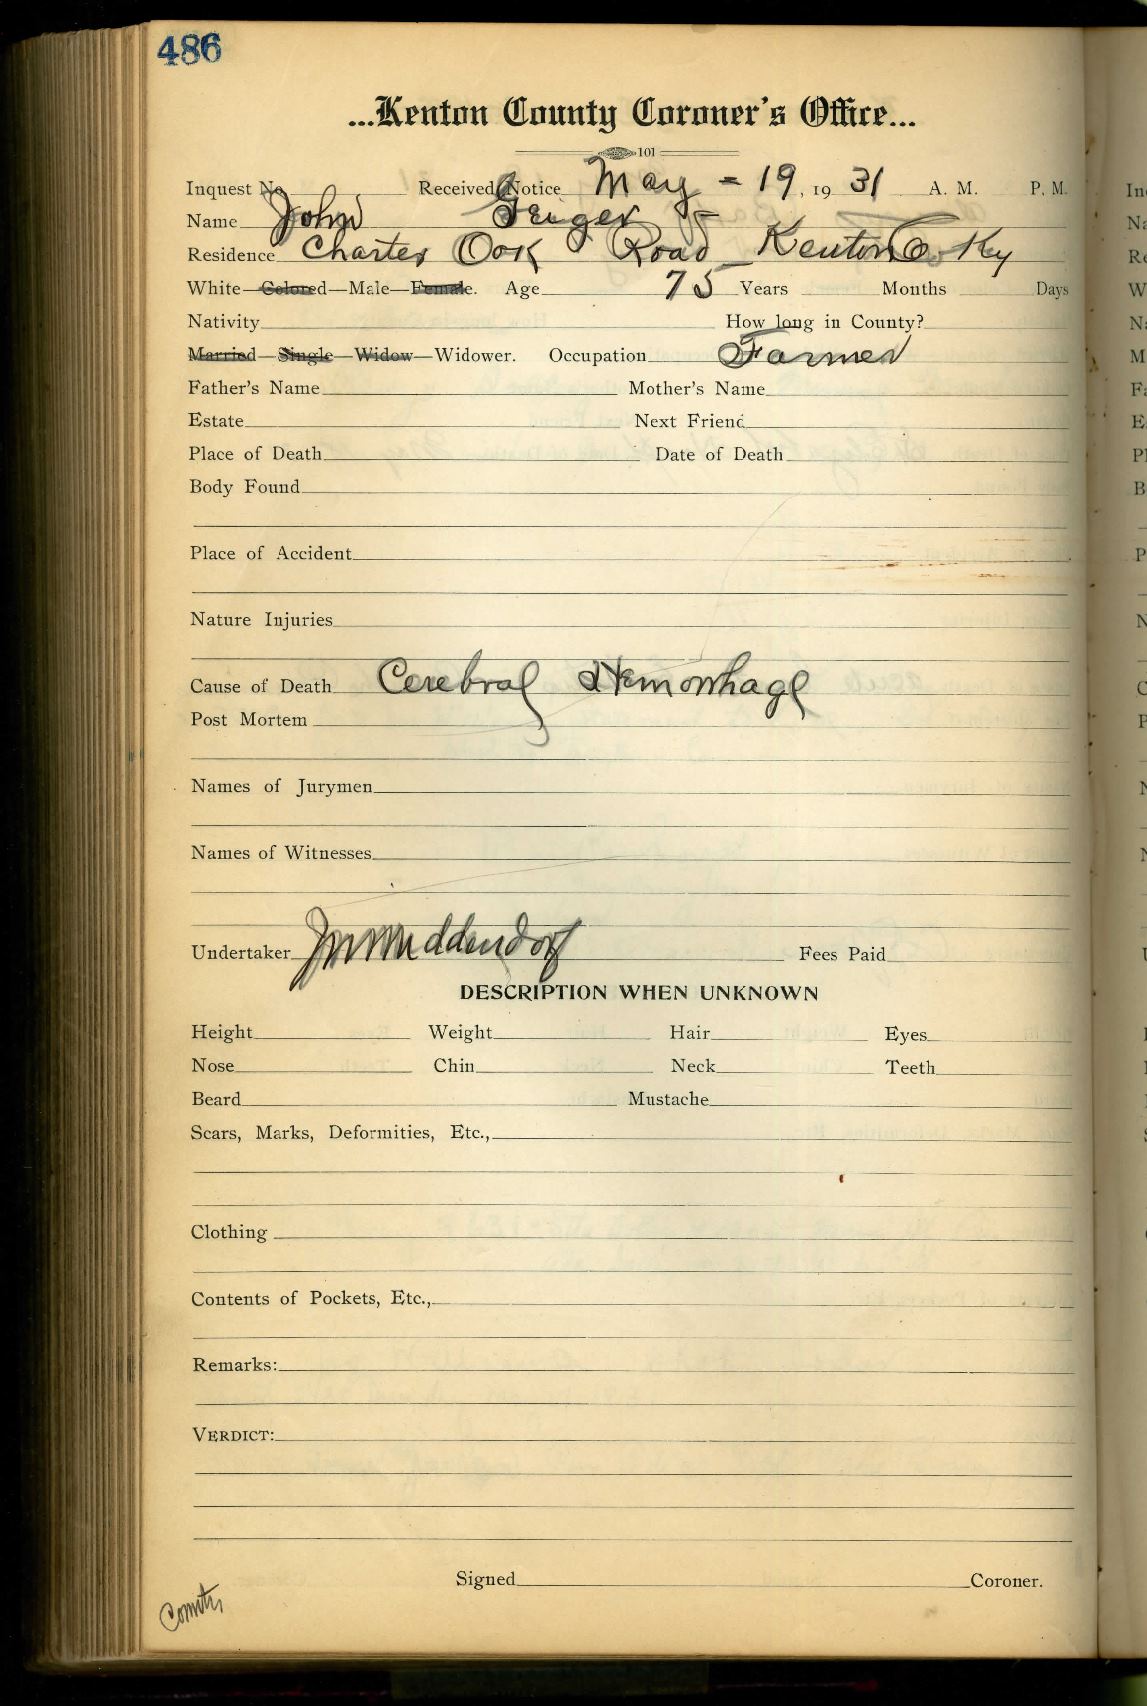 486
...Kenton County Coroner's Office...
101
Inquest No. Received Notice May - 19, 19 31 A. M. P. M.
Name John Geiger
Residence Charter Oak Road Kenton Co Ky
White—Colored—Male—Female. Age 75 Years Months Days
Nativity How long in County?
Married—Single—Widow—Widower. Occupation Farmer
Father's Name Mother's Name
Estate Next Friend
Place of Death Date of Death
Body Found
Place of Accident
Nature Injuries
Cause of Death Cerebral Hemorrhage
Post Mortem
Names of Jurymen
Names of Witnesses
Undertaker Middendorf Fees Paid
DESCRIPTION WHEN UNKNOWN
Height Weight Hair Eyes
Nose Chin Neck Teeth
Beard Mustache
Scars, Marks, Deformities, Etc.,
Clothing
Contents of Pockets, Etc.,
Remarks:
VERDICT:
Signed Coroner.